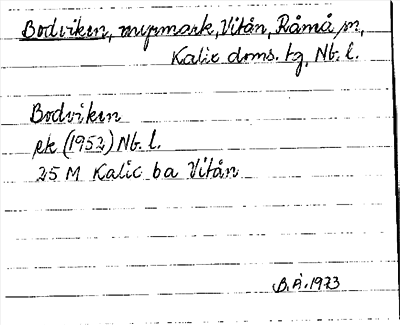 Bodviken, myrmark, Vitån, Råmå sn,
Kalix doms. tg, Nb. l.
Bodviken
ek (1952) Nb. l.
25 M Kalix ba Vitån
B.Å. 1973